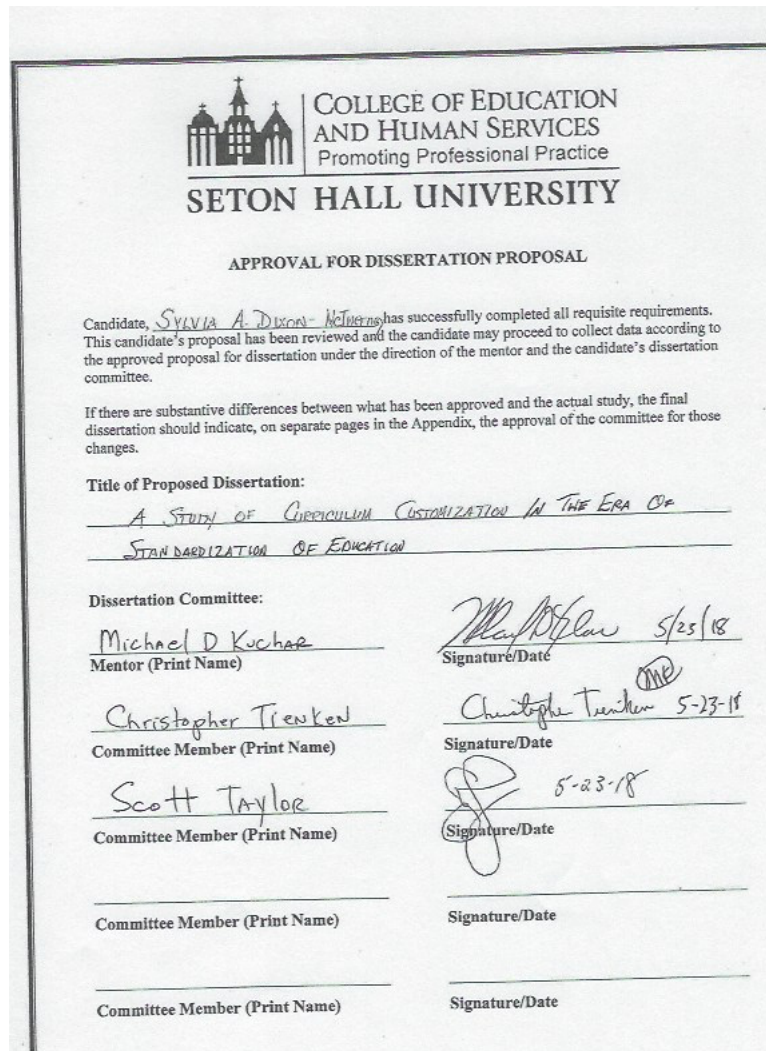 COLLEGE OF EDUCATION
AND HUMAN SERVICES
Promoting Professional Practice
SETON HALL UNIVERSITY
APPROVAL FOR DISSERTATION PROPOSAL
Candidate, SYLVIA A. DIXON- McInerney has successfully completed all requisite requirements.
This candidate's proposal has been reviewed and the candidate may proceed to collect data according to
the approved proposal for dissertation under the direction of the mentor and the candidate's dissertation
committee.
If there are substantive differences between what has been approved and the actual study, the final
dissertation should indicate, on separate pages in the Appendix, the approval of the committee for those
changes.
Title of Proposed Dissertation:
A STUDY OF CURRICULUM CUSTOMIZATION IN THE ERA OF
STANDARDIZATION OF EDUCATION
Dissertation Committee:
Michael D Kuchar 5/23/18
Mentor (Print Name) Signature/Date
MK
Christopher Tienken Christopher Tienken 5-23-18
Committee Member (Print Name) Signature/Date
Scott Taylor 5-23-18
Committee Member (Print Name) Signature/Date
Committee Member (Print Name) Signature/Date
Committee Member (Print Name) Signature/Date